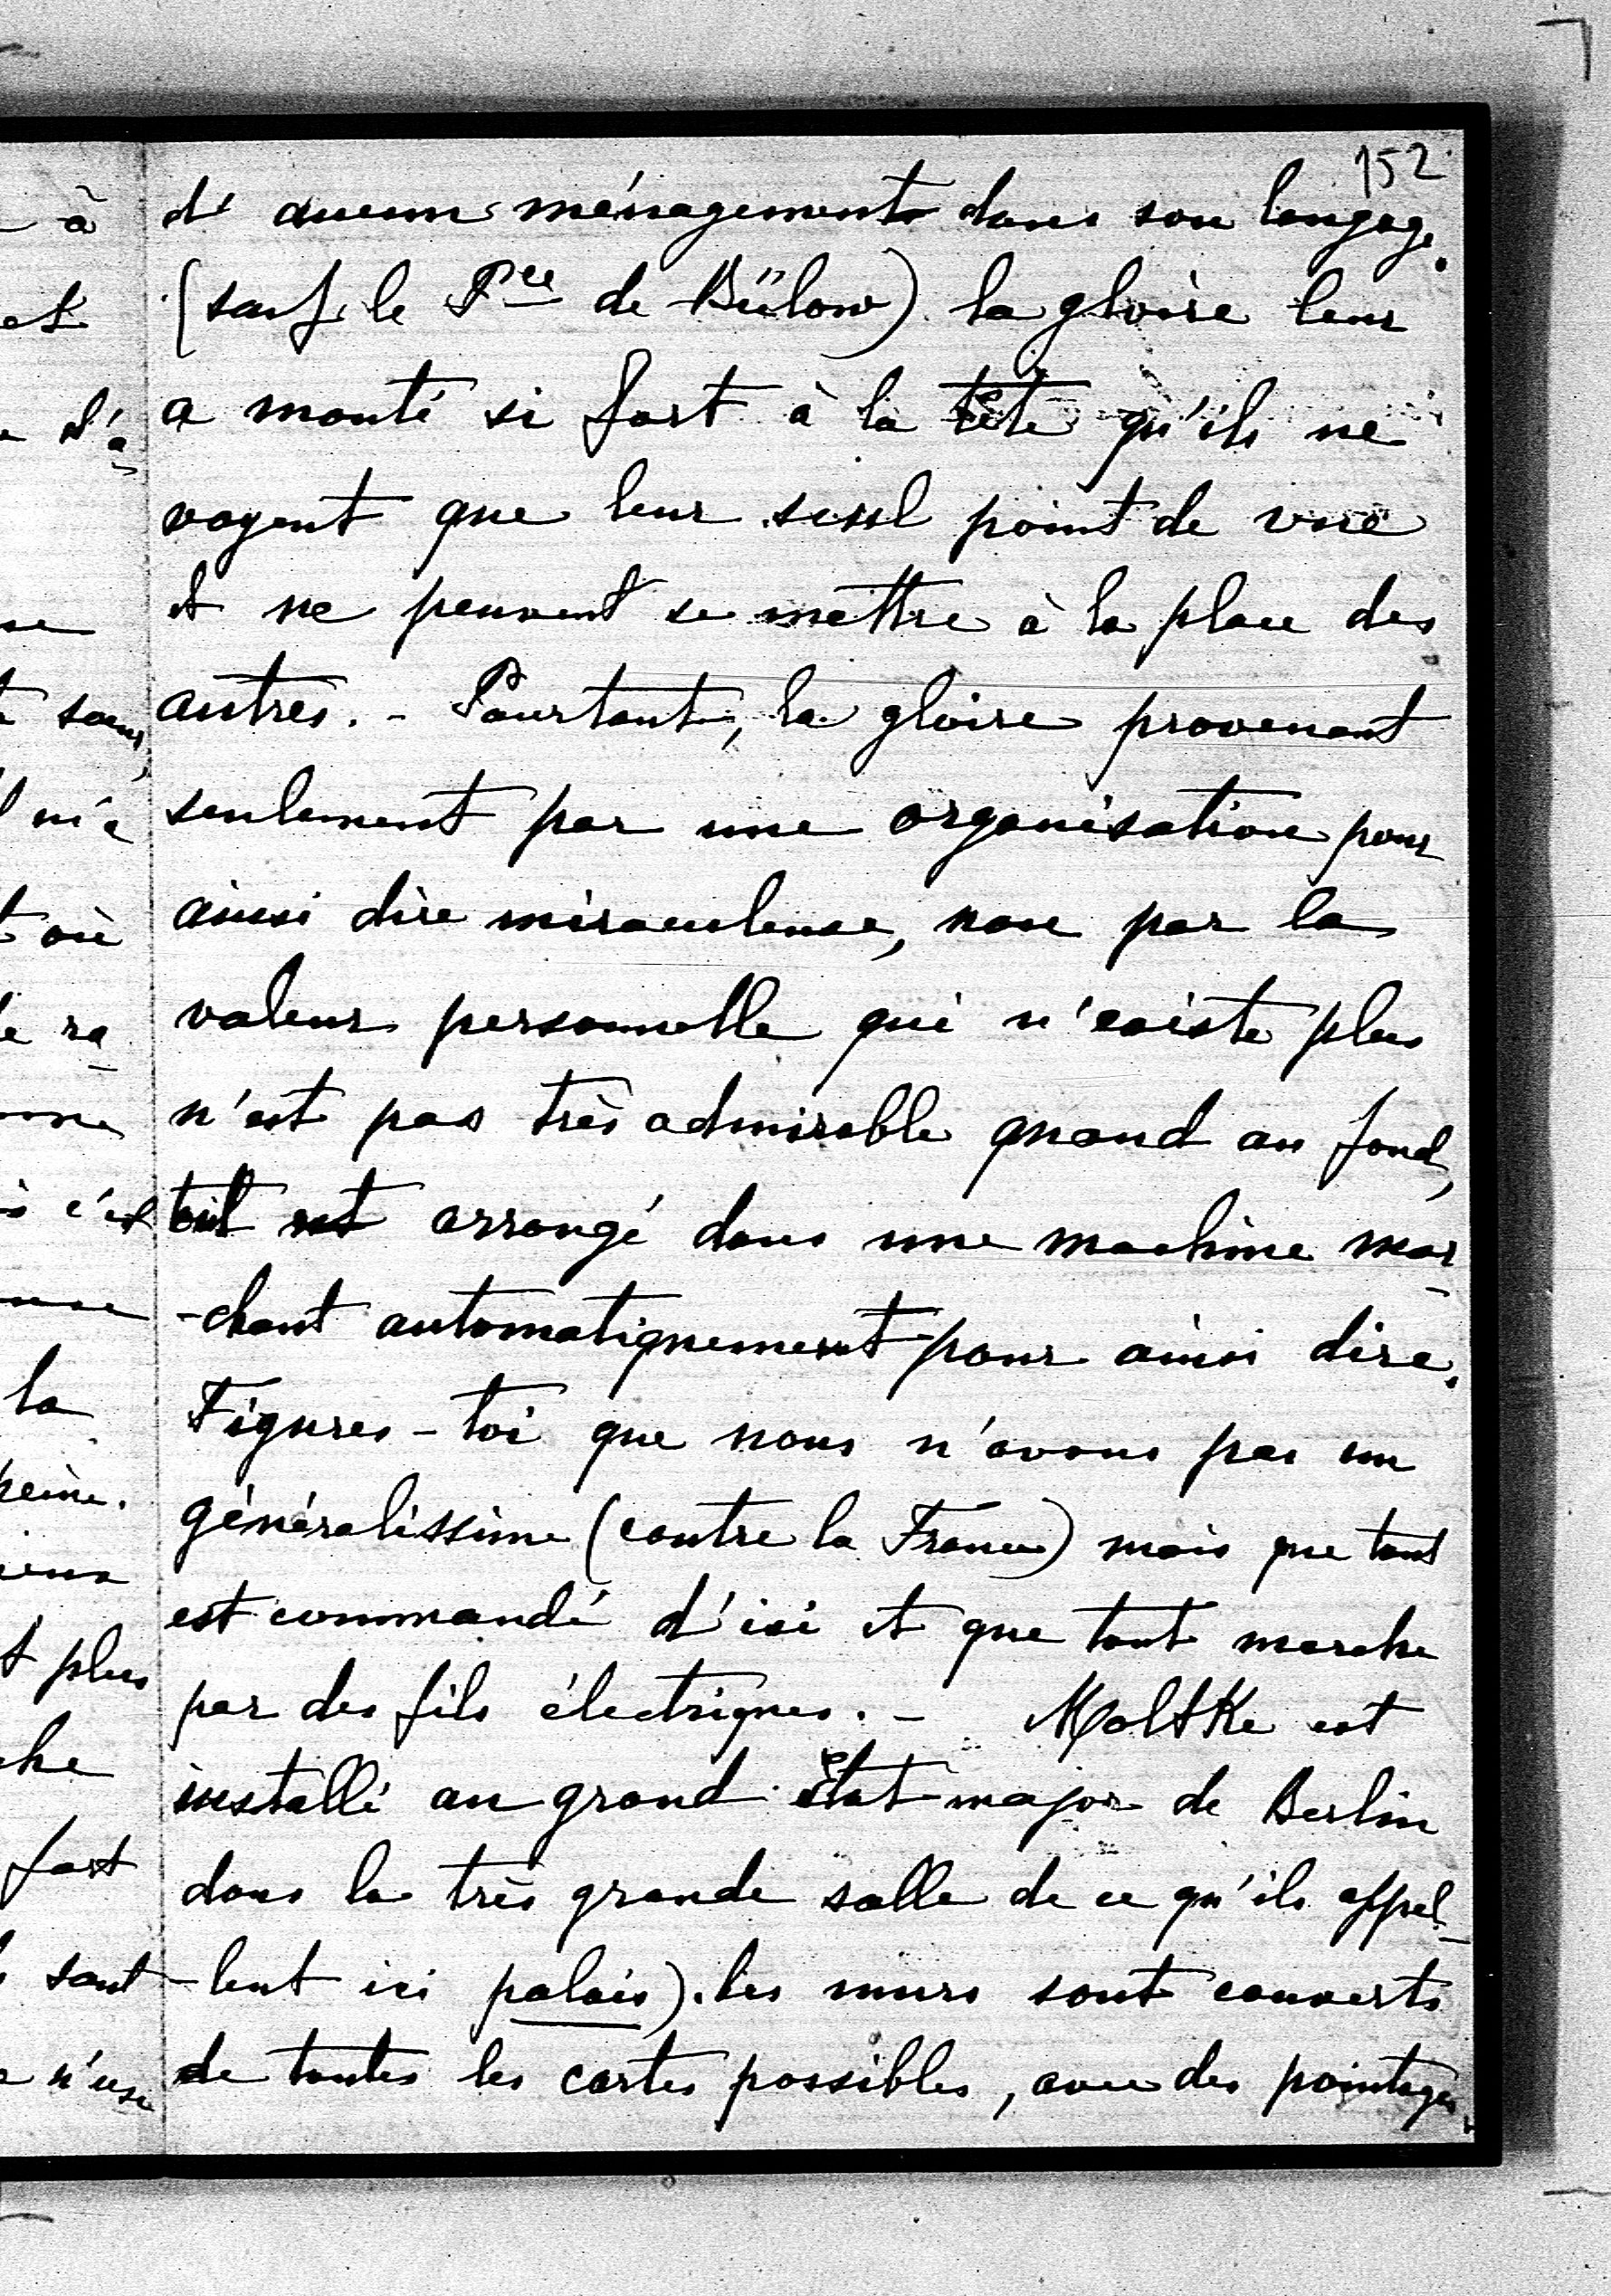 152
d'aucun ménagement dans son langage.
(sauf le Pce de Bülow). la gloire leur
a monté si fort à la tête qu'ils ne
voyent que leur seul point de vue
et ne peuvent se mettre à la place des
autres. - Pourtant, la gloire provenant
seulement par une organisation pour
ainsi dire miraculeuse, non par la
valeur personnelle qui n'existe plus
n'est pas très admirable quand au fond,
tout est arrangé dans une machine mar-
-chant automatiquement pour ainsi dire.
Figures-toi que nous n'avons pas un
généralissime (contre la France) mais que tout
est commandé d'ici et que tout marche
par des fils électriques. - Moltke est
installé au grand état-major de Berlin
dans la très grande salle de ce qu'ils appel-
-lent ici palais). les murs sont couverts
de toutes les cartes possibles, avec des pointages
à
et
d'a-
sans,
m'a
où
ra-
c'est
la
peine.
plus
fort
sont
n'use